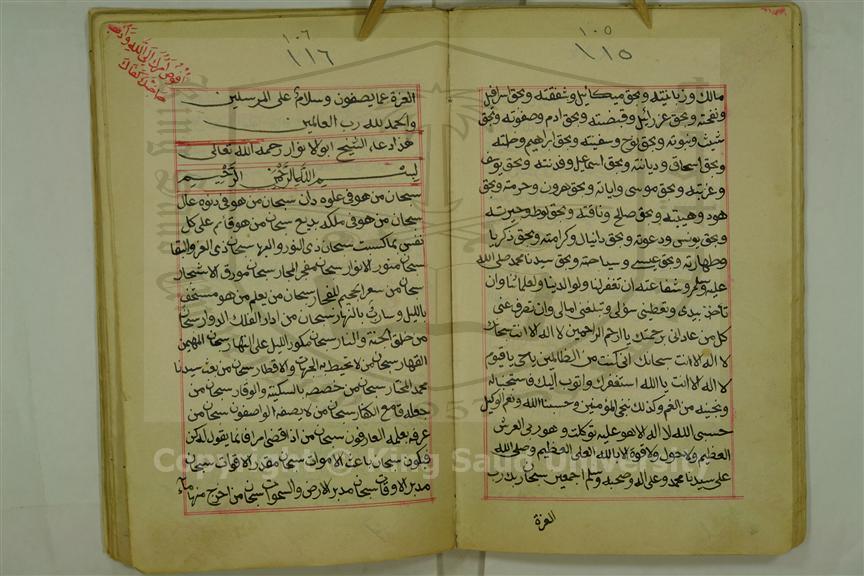 ١٠٥
١١٥
مالك وزبانيته وبحق ميكائيل وشفقته وبحق اسرافيل
ونفخته وبحق عزرائيل وقبضته وبحق ادم وصفوته وبحق
شيث ونبوته وبحق نوح وسفينته وبحق ابراهيم وخلته
وبحق اسحاق وديانته وبحق اسماعيل وفدنته وبحق يوسف
وغربته وبحق موسى واياته وبحق هرون وحرمته وبحق
هود وهيبته وبحق صالح وناقته وبحق لوط وجيرته
وبحق يونس ودعوته وبحق دانيال وكرامته وبحق ذكريا
وطهارته وبحق عيسى وسياحته وبحق سيدنا محمد صلى الله
عليه وسلم وشفاعته ان تغفر لنا ولوالدينا ولعلمائنا وان
تاخذ بيدي وتعطني سؤلي وتبلغني امالي وان تصرف عني
كل من عاداني برحمتك يا ارحم الراحمين لا اله الا انت سبحانك
لا اله الا انت سبحانك اني كنت من الظالمين يا حي يا قيوم
لا اله الا انت يا الله استغفرك واتوب اليك فاستجبنا له
ونجيناه من الغم وكذلك ننجي المؤمنين وحسبنا الله ونعم الوكيل
حسبي الله لا اله الا هو عليه توكلت وهو رب العرش
العظيم ولا حول ولا قوة الا بالله العلي العظيم وصلى الله
على سيدنا محمد وعلى اله وصحبه وسلم اجمعين سبحان ربك رب
العزة
١٠٦
١١٦
وافوض امري الى الله
العزة عما يصفون وسلام على المرسلين
والحمد لله رب العالمين
هذا دعاء الشيخ ابو الانوار رحمه الله تعالى
بسم الله الرحمن الرحيم
سبحان من هو في علوه دان سبحان من هو في دنوه عال
سبحان من هو في ملكه بديع سبحان من هو قائم على كل
نفس بما كسبت سبحان ذي النور والبها سبحان ذي العز والبقا
سبحان منور الانوار سبحان مفجر البحار سبحان مورق الاشجار
سبحان من سعر الجحيم للفجار سبحان من يعلم من هو مستخف
بالليل وسارب بالنهار سبحان من ادار الفلك الدوار سبحان
من خلق الجنة والنار سبحان مكور الليل على النهار سبحان المهيمن
القهار سبحان من لا تحيط به الجهات والاقطار سبحان من بعث سيدنا
محمد المختار سبحان من خصصه بالسكينة والوقار سبحان من
جعله قامع الكفار سبحان من لا يصفه الواصفون سبحان من
عرفه بعلمه العارفون سبحان من اذا قضى امرا فانما يقول له كن
فيكون سبحان باعث الاموات سبحان مقدر الاقوات سبحان
مدبر الاوقات سبحان مدبر الارض والسموات سبحان من اخرج منها ماء
Copyright © King Saud University
1957